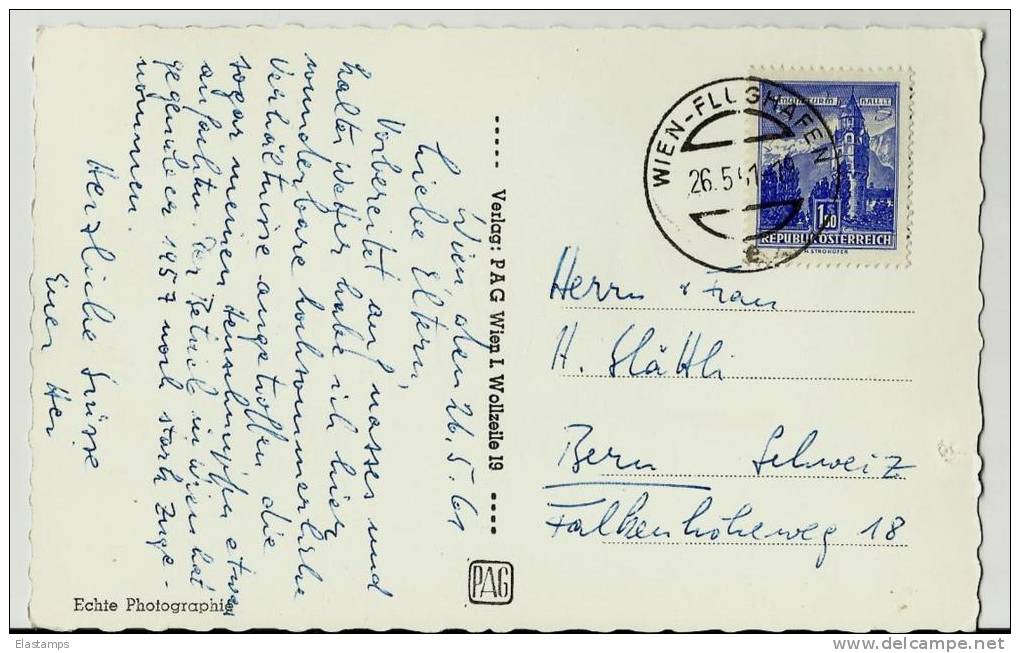 Wien den 26.5.61
Liebe Eltern,
Vorbereitet auf nasses und
kaltes Wetter habe ich hier
wunderbare hochsommerliche
Verhältnisse angetroffen die
sogar meinen Heuschnupfen etwas
anfachten. Der Betrieb in Wien hat
gegenüber 1957 noch stark zuge-
nommen.
Herzliche Grüsse
Euer
Echte Photographie
Verlag: PAG Wien I. Wollzeile 19
PAG
WIEN-FLUGHAFEN
26.5.61
HALL I.T.
1S50
REPUBLIK ÖSTERREICH
Herrn & Frau
H. Stättli
Bern Schweiz
Falkenhöheweg 18
Elastamps
www.delcampe.net